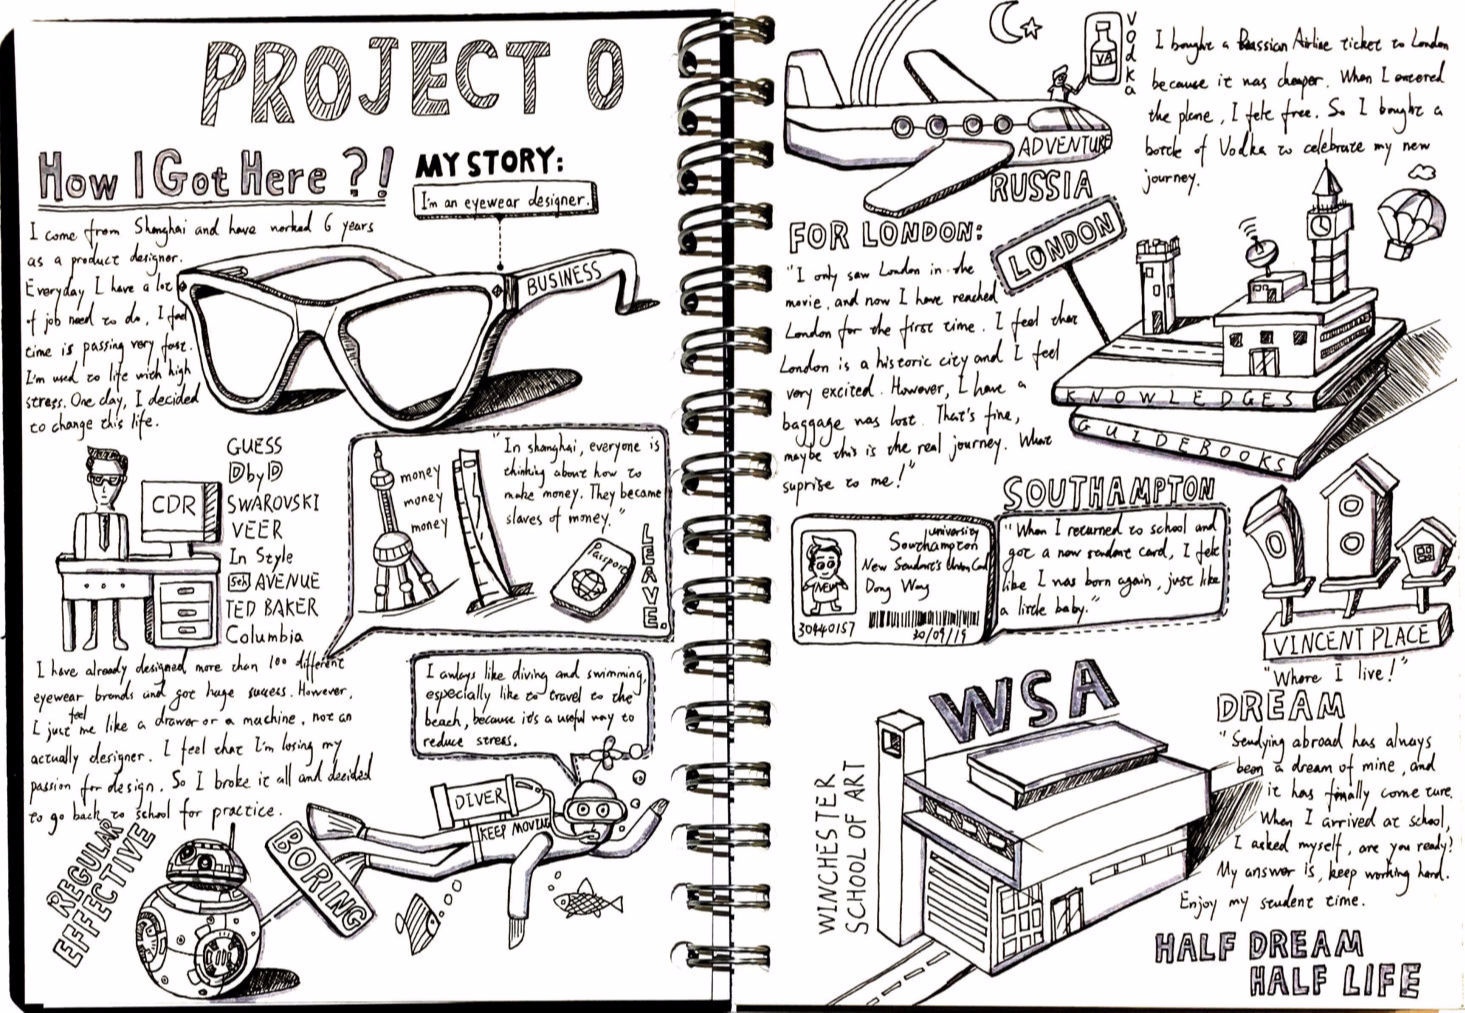 PROJECT 0
How I Got Here ?!
MY STORY:
I'm an eyewear designer.
I come from Shanghai and have worked 6 years
as a product designer.
Everyday I have a lot
of job need to do, I feel
time is passing very fast.
I'm used to life with high
stress. One day, I decided
to change this life.
BUSINESS
CDR
GUESS
DbyD
SWAROVSKI
VEER
In Style
5th AVENUE
TED BAKER
Columbia
money
money
money
"In shanghai, everyone is
thinking about how to
make money. They became
slaves of money."
Passport
LEAVE.
I have already designed more than 100 different
eyewear brands and got huge success. However,
I just feel me like a drawer or a machine, not an
actually designer. I feel that I'm losing my
passion for design. So I broke it all and decided
to go back to school for practice.
I always like diving and swimming,
especially like to travel to the
beach, because it's a useful way to
reduce stress.
DIVER
KEEP MOVING
REGULAR
EFFECTIVE
BORING
VODKA
VA
I bought a Russian Airline ticket to London
because it was cheaper. When I entered
the plane, I felt free. So I bought a
bottle of Vodka to celebrate my new
journey.
ADVENTURE
RUSSIA
FOR LONDON:
"I only saw London in the
movie, and now I have reached
London for the first time. I feel that
London is a historic city and I feel
very excited. However, I have a
baggage was lost. That's fine,
maybe this is the real journey. What
suprise to me!"
LONDON
KNOWLEDGES
GUIDEBOOKS
SOUTHAMPTON
university
Southampton
New Student's Union Card
Dong Wang
NEW
30440157
30/09/19
"When I returned to school and
got a new student card, I felt
like I was born again, just like
a little baby."
VINCENT PLACE
"Where I live!"
WSA
WINCHESTER
SCHOOL OF ART
DREAM
"Sendying abroad has always
been a dream of mine, and
it has finally come ture.
When I arrived at school,
I asked myself, are you ready?
My answer is, keep working hard.
Enjoy my student time.
HALF DREAM
HALF LIFE